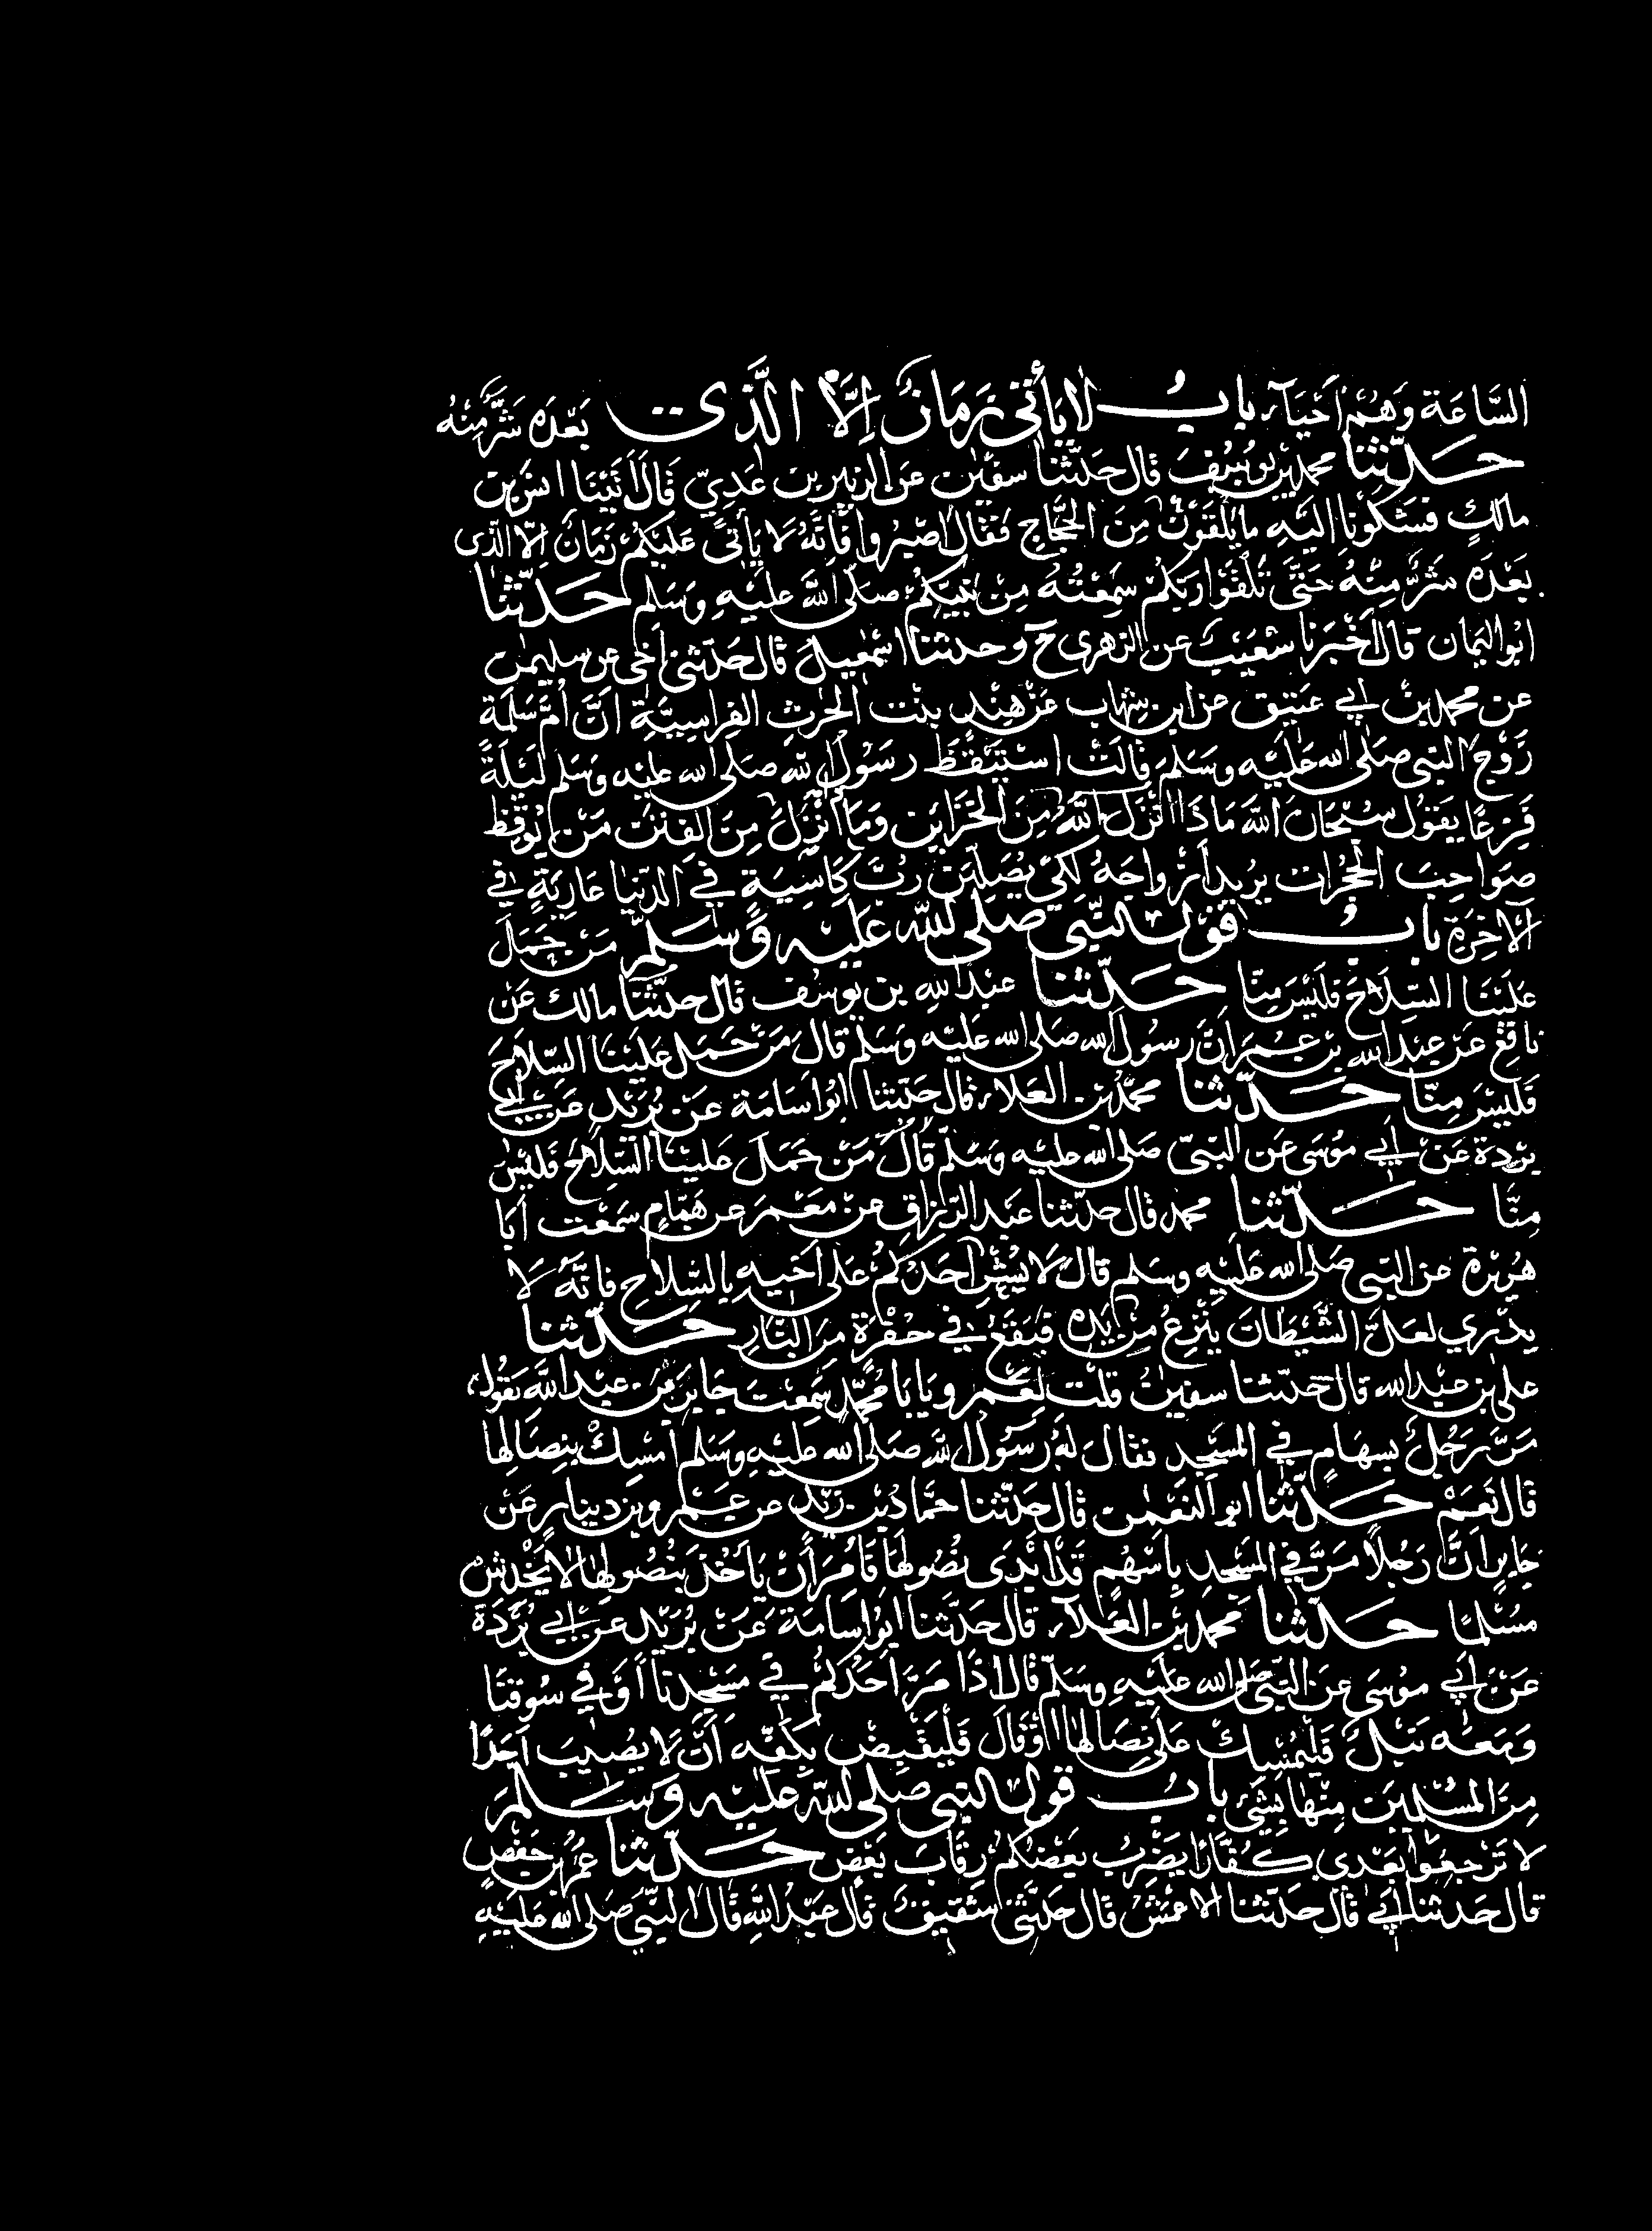 السَّاعَة وَهُمْ اَحْيَآء باب لا يَأتي زَمَانٌ اِلَّا الَّذي بَعْدَه شَرٌّ مِنْهُ
حَدَّثنا محمد بن يُوسُف قال حَدَّثنا سفيٰن عَن الزبير بن عَدِيّ قَالَ اَتَيْنَا انسَ بن
مالكٍ فشكَونا اليَهِ ما يَلْقَوْنَ مِنَ الحَجَّاجِ فَقال اصْبِروا فَاِنَّهُ لَا يَأتي عَلَيكمْ زَمَانٌ الَّا الذى
بَعْدَه شَرٌّ مِنْهُ حَتَّى تَلْقَوْا رَبَّكمْ سَمِعْتُهُ مِنْ نَبِيِّكمْ صلّى اللهُ عَليْهِ وَسَلم حَدَّثنَا
ابُو اليَمان قالَ اَخْبَرنَا شُعَيْبٌ عن الزهرى ح وحدثنا اسْمٰعِيلُ قال حَدّثنى اَخى عن سليمٰن
عن محمد بن ابي عَتيق عن ابن شِهَاب عَنْ هِنْدٍ بِنْت الحٰرث الفِراسِيَّةِ اَنَّ اُمَّ سَلَمة
زَوْج النبى صَلى الله عَليَه وَسَلمَ قالَت استَيْقَظَ رسَوُل الله صَلى الله عليْه وَسَلم لَيْلَةً
فَزِعًا يَقول سُبْحَانَ اللهِ مَاذَا اَنْزَلَ اللهُ مِنَ الخَزَاين وَمَا اُنْزِلَ مِنَ الفتَن مَنْ يُوقظ
صَوَاحِبَ الحُجُرات يُريد اَزْواجَهُ لكي يُصَلّين رُبَّ كَاسِيَةٍ في الدّنيا عَاريَةٍ في
الآخِرَة باب قول النَّبي صَلى الله عَليْه وَسَلم مَنْ حَمَلَ
عَلَيْنَا السّلاحَ فلَيْسَ مِنّا حَدَّثنا عبد الله بن يوسُف قال حدَّثنَا مالك عَن
نافِع عَن عبد الله بن عُمر اَنَّ رسُول الله صَلى الله عَليْه وَسَلم قالَ مَنْ حَمَلَ عَلَيْنَا السّلَاحَ
فَلَيْسَ مِنّا حَدّثنا محمّد بن العَلاء قال حَدّثنا ابُو اسَامَة عَن بُرَيْد عَن ابي
بُرْدَة عَنْ ابي مُوسَى عَن النبيّ صَلى الله عليْه وَسَلّم قَالَ مَنْ حَمَلَ عَليْنَا السّلاحَ فَليْسَ
مِنَّا حَدّثنا محمد قال حدّثنا عَبد الرّزاق عن مَعْمَر عن همّامٍ سَمعْت اَبا
هُرَيْرة عن النبى صَلى الله عَليْه وسَلم قالَ لَا يُشيرُ اَحَدُكُمْ عَلى اَخيهِ بالسّلاح فَاِنَّهُ لَا
يَدْرِي لعَلَّ الشَّيْطَانَ يَنْزِعُ مِنْ يَدِه فَيَقَعُ في حُفْرَة مِنَ النَّارِ حَدّثنا
على بن عَبد الله قال حَدّثنا سفيٰن قلْت لِعَمرو يَابَا محمّد سَمعْتَ جَابِرَ بن عبد الله يَقول
مَرَّ رَجُلٌ بِسِهَامٍ في المسْجِدِ فقَالَ لهُ رسُول الله صَلى الله عَليْهِ وَسَلم اَمْسِكْ بِنِصَالهَا
قَالَ نَعَمْ حَدّثنا ابو النعْمٰن قال حَدّثنا حمّاد بن زَيْد عن عَمرو بن دينارٍ عَنْ
جَابِر اَنَّ رَجُلاً مَرَّ في المسْجِد بِاَسْهُم قَد اَبْدَى نُصُولهَا فَاُمِرَ اَنْ يَأخُذَ بِنُصُولِها لَا يَخْدش
مُسْلمًا حَدّثنا محمد بن العَلآء قال حَدَّثنا ابُو اسَامَة عَنْ بُرَيْد عن ابي بُرْدَةَ
عَنْ ابي مُوسَى عَن النبيّ صَلى الله عَليْهِ وسَلّم قالَ اِذَا مَرَّ اَحَدُكمْ في مَسْجِدِنَا اَوْ في سُوقنَا
وَمَعَهُ نَبْلٌ فَليُمْسِك عَلى نِصَالهَا اَوْ قَالَ فَليَقْبِضْ بِكَفِّه اَنْ لَا يُصيْبَ اَحَدًا
مِنَ المسْلمِينَ مِنْهَا بِشَئ بابُ قول النبى صَلى الله عَليْه وَسَلمَ
لا تَرْجِعُوا بَعْدِي كُفّارًا يَضْرِبُ بَعْضُكمْ رِقَابَ بَعْض حَدّثنا عُمَرُ بن حَفْصٍ
قال حَدثنا ابي قال حَدّثنا الاعمَشُ قال حَدَّثنَا شَقيقٌ قال عَبْد اللهِ قالَ النبيّ صَلى الله عَليْهِ